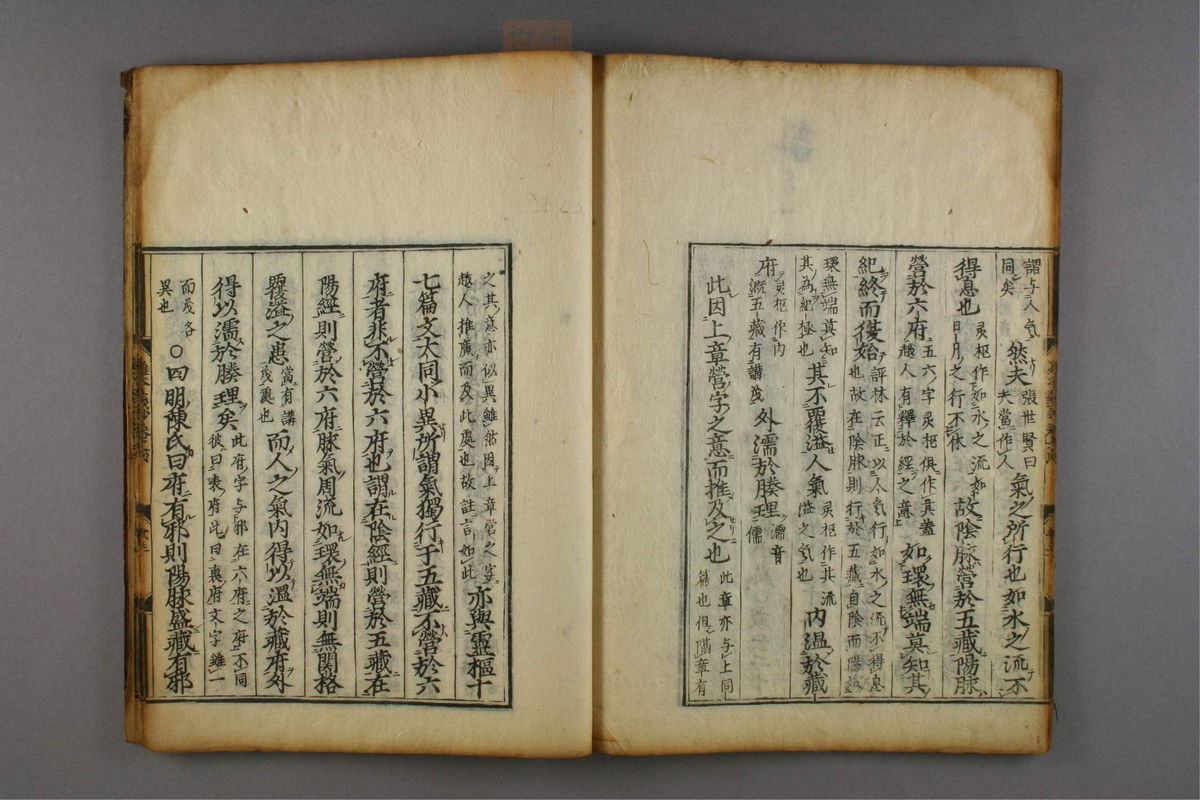 謂与人気同矣 然夫 張世賢曰夫當作人 氣之所行也如水之流不
得息也 灵枢作如水之流如日月之行不休 故陰脉營於五藏陽脉
營於六府 五六字灵枢俱作其盖越人有釋於經之意 如環無端莫知其
紀終而復始 評林云正以人氣行如水之流不得息也故在陰脉則行於五藏自陰而陽如
環無端莫知其為紀極也 其不覆溢人氣 灵枢作其流溢之気也 内温於藏
府 灵枢作内溉五藏有講茂 外濡於腠理 濡音儒
此因上章營字之意而推及之也 此章亦与上同篇也但隔章有
之其意亦似異雖然因上章常之字越人推廣而及此處也故註言如此 亦與靈樞十
七篇文大同小異所謂氣獨行于五藏不營於六
府者非不營於六府也謂在陰經則營於五藏在
陽經則營於六府脉氣周流如環無端則無関格
覆溢之患 當有講茂裏也 而人之氣内得以温於藏府外
得以濡於腠理矣 此府字与邪在六府之府不同彼曰表府此曰裏府文字雖一
而茂各異也 ○四明陳氏曰府有邪則陽脉盛藏有邪